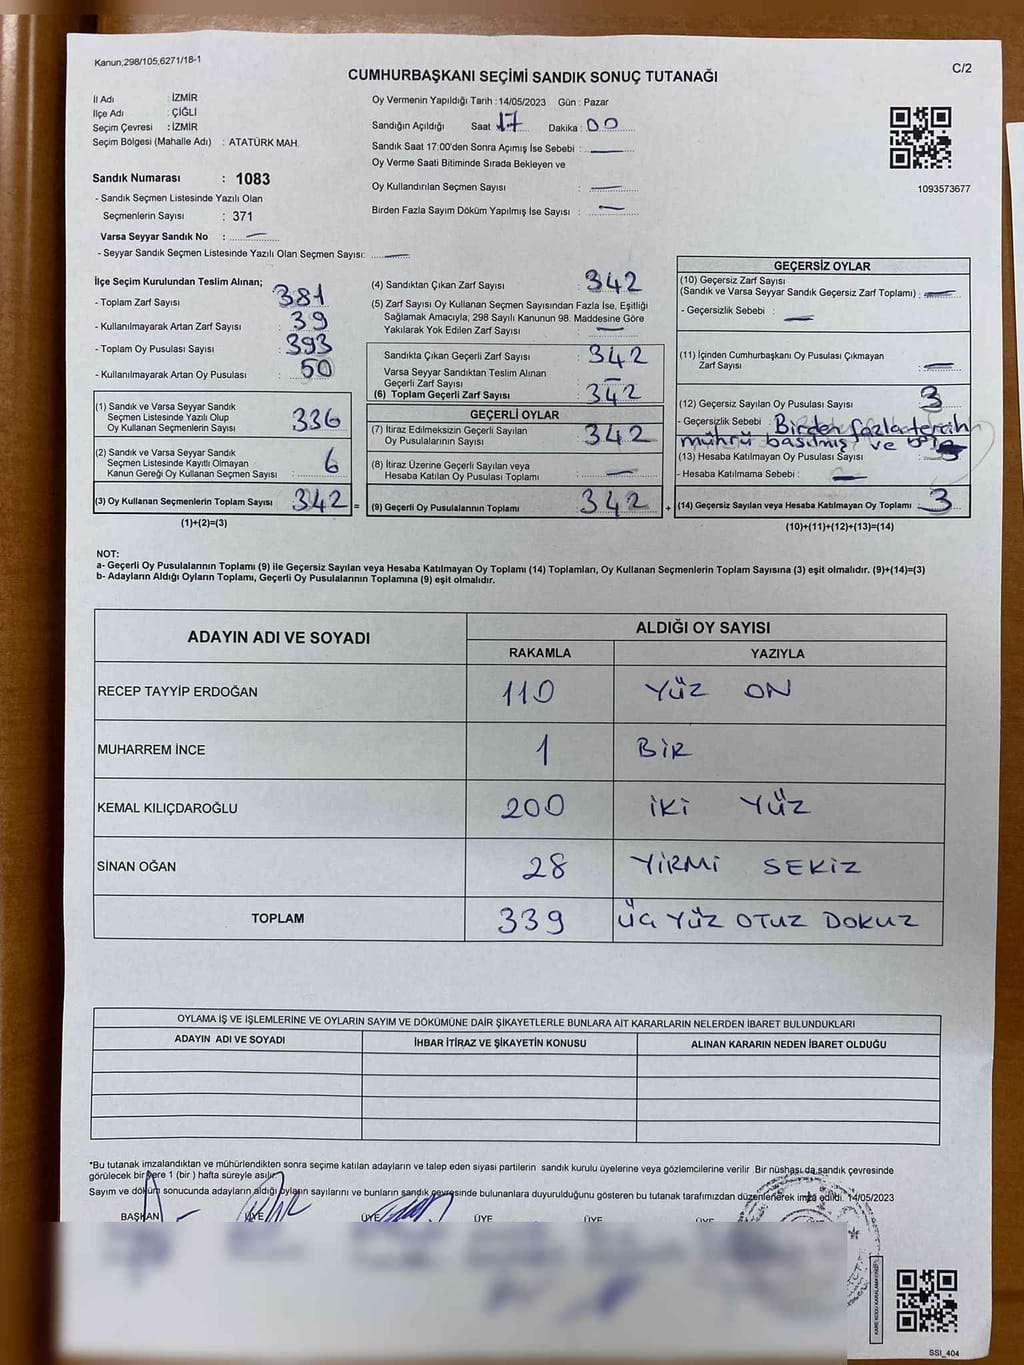 Kanun;298/105,6271/18-1
C/2
CUMHURBAŞKANI SEÇİMİ SANDIK SONUÇ TUTANAĞI
İl Adı : İZMİR
İlçe Adı : ÇİĞLİ
Seçim Çevresi : İZMİR
Seçim Bölgesi (Mahalle Adı) : ATATÜRK MAH.
Sandık Numarası : 1083
- Sandık Seçmen Listesinde Yazılı Olan
Seçmenlerin Sayısı : 371
Varsa Seyyar Sandık No : —
- Seyyar Sandık Seçmen Listesinde Yazılı Olan Seçmen Sayısı: —
Oy Vermenin Yapıldığı Tarih : 14/05/2023 Gün : Pazar
Sandığın Açıldığı Saat 17 Dakika : 00
Sandık Saat 17:00'den Sonra Açımış İse Sebebi : —
Oy Verme Saati Bitiminde Sırada Bekleyen ve
Oy Kullandırılan Seçmen Sayısı : —
Birden Fazla Sayım Döküm Yapılmış İse Sayısı : —
1093573677
İlçe Seçim Kurulundan Teslim Alınan;
- Toplam Zarf Sayısı : 381
- Kullanılmayarak Artan Zarf Sayısı : 39
- Toplam Oy Pusulası Sayısı : 393
- Kullanılmayarak Artan Oy Pusulası : 50
(1) Sandık ve Varsa Seyyar Sandık
Seçmen Listesinde Yazılı Olup
Oy Kullanan Seçmenlerin Sayısı : 336
(2) Sandık ve Varsa Seyyar Sandık
Seçmen Listesinde Kayıtlı Olmayan
Kanun Gereği Oy Kullanan Seçmen Sayısı : 6
(3) Oy Kullanan Seçmenlerin Toplam Sayısı : 342 =
(1)+(2)=(3)
(4) Sandıktan Çıkan Zarf Sayısı : 342
(5) Zarf Sayısı Oy Kullanan Seçmen Sayısından Fazla İse, Eşitliği
Sağlamak Amacıyla, 298 Sayılı Kanunun 98. Maddesine Göre
Yakılarak Yok Edilen Zarf Sayısı : —
Sandıkta Çıkan Geçerli Zarf Sayısı : 342
Varsa Seyyar Sandıktan Teslim Alınan
Geçerli Zarf Sayısı : —
(6) Toplam Geçerli Zarf Sayısı : 342
GEÇERLİ OYLAR
(7) İtiraz Edilmeksizin Geçerli Sayılan
Oy Pusulalarının Sayısı : 342
(8) İtiraz Üzerine Geçerli Sayılan veya
Hesaba Katılan Oy Pusulası Toplamı : —
(9) Geçerli Oy Pusulalarının Toplamı : 342 +
GEÇERSİZ OYLAR
(10) Geçersiz Zarf Sayısı
(Sandık ve Varsa Seyyar Sandık Geçersiz Zarf Toplamı) : —
- Geçersizlik Sebebi : —
(11) İçinden Cumhurbaşkanı Oy Pusulası Çıkmayan
Zarf Sayısı : —
(12) Geçersiz Sayılan Oy Pusulası Sayısı : 3
- Geçersizlik Sebebi : Birden fazla tercih
mührü basılmış ve
(13) Hesaba Katılmayan Oy Pusulası Sayısı :
- Hesaba Katılmama Sebebi : —
(14) Geçersiz Sayılan veya Hesaba Katılmayan Oy Toplamı : 3
(10)+(11)+(12)+(13)=(14)
NOT:
a- Geçerli Oy Pusulalarının Toplamı (9) ile Geçersiz Sayılan veya Hesaba Katılmayan Oy Toplamı (14) Toplamları, Oy Kullanan Seçmenlerin Toplam Sayısına (3) eşit olmalıdır. (9)+(14)=(3)
b- Adayların Aldığı Oyların Toplamı, Geçerli Oy Pusulalarının Toplamına (9) eşit olmalıdır.
ADAYIN ADI VE SOYADI ALDIĞI OY SAYISI
RAKAMLA YAZIYLA
RECEP TAYYİP ERDOĞAN 110 YÜZ ON
MUHARREM İNCE 1 BİR
KEMAL KILIÇDAROĞLU 200 İKİ YÜZ
SİNAN OĞAN 28 YİRMİ SEKİZ
TOPLAM 339 ÜÇ YÜZ OTUZ DOKUZ
OYLAMA İŞ VE İŞLEMLERİNE VE OYLARIN SAYIM VE DÖKÜMÜNE DAİR ŞİKAYETLERLE BUNLARA AİT KARARLARIN NELERDEN İBARET BULUNDUKLARI
ADAYIN ADI VE SOYADI İHBAR İTİRAZ VE ŞİKAYETİN KONUSU ALINAN KARARIN NEDEN İBARET OLDUĞU
*Bu tutanak imzalandıktan ve mühürlendikten sonra seçime katılan adayların ve talep eden siyasi partilerin sandık kurulu üyelerine veya gözlemcilerine verilir .Bir nüshası da sandık çevresinde
görülecek bir yere 1 (bir ) hafta süreyle asılır.
Sayım ve döküm sonucunda adayların aldığı oyların sayılarını ve bunların sandık çevresinde bulunanlara duyurulduğunu gösteren bu tutanak tarafımızdan düzenlenerek imza edildi. 14/05/2023
BAŞKAN ÜYE ÜYE ÜYE ÜYE ÜYE
SSI_404